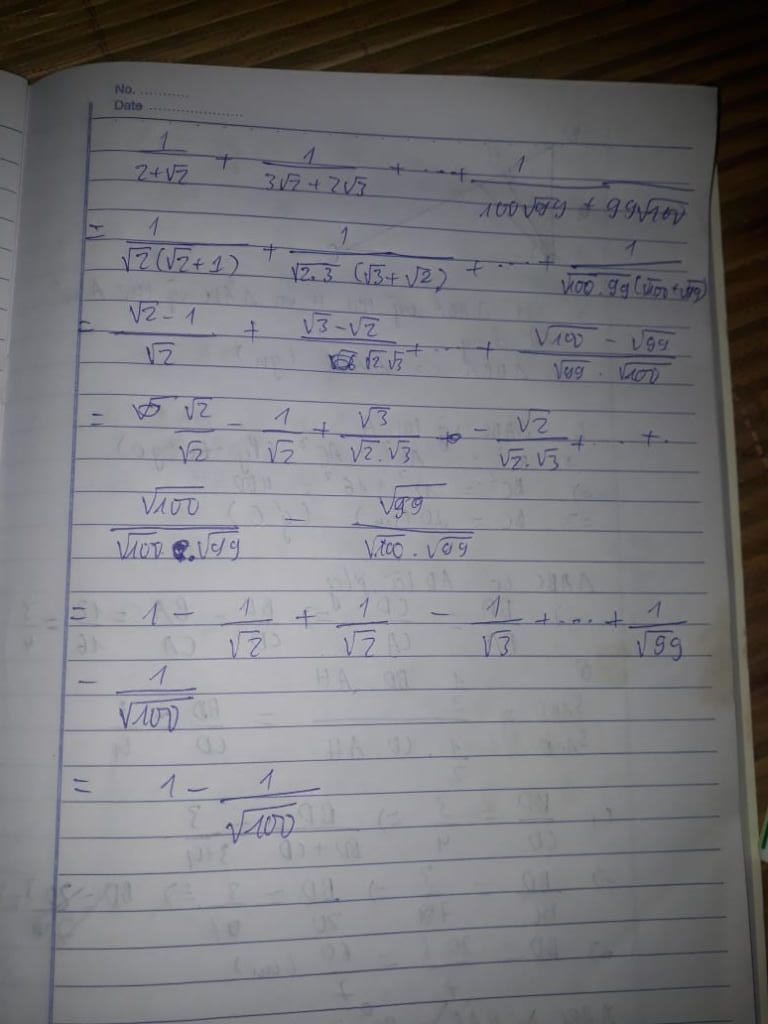 No. ..........
Date ......................
1/(2+√2) + 1/(3√2+2√3) + ... + 1/(100√99 + 99√100)
= 1/(√2(√2+1)) + 1/(√2.3 (√3+√2)) + ... + 1/(√100.99 (√100+√99))
= (√2-1)/√2 + (√3-√2)/(√2.√3) + ... + (√100 - √99)/(√99 . √100)
= √2/√2 - 1/√2 + √3/(√2.√3) - √2/(√2.√3) + ... +
√100/(√100.√99) - √99/(√100.√99)
= 1 - 1/√2 + 1/√2 - 1/√3 + ... + 1/√99
- 1/√100
= 1 - 1/√100